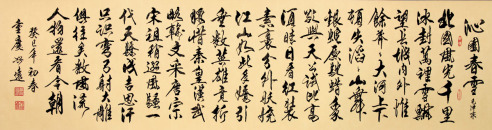 沁園春雪
北國風光千里
冰封萬里雪飄
望長城內外惟
餘莽莽大河上下
頓失滔滔山舞
銀蛇原馳蠟象
欲與天公試比高
須晴日看紅裝
素裹分外妖嬈
江山如此多嬌引
無數英雄競折
腰惜秦皇漢武
略輸文采唐宗
宋祖稍遜風騷一
代天驕成吉思汗
只識彎弓射大雕
俱往矣數風流
人物還看今朝
癸巳年初春
重慶